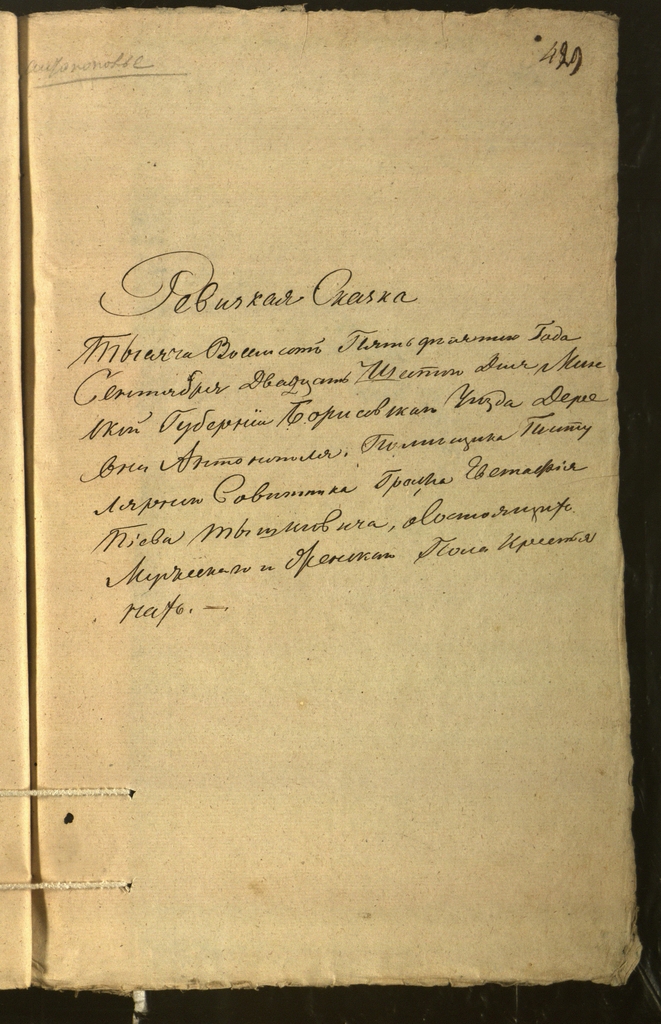 429
Ревизкая Сказка
Тысяча Восемсотъ Пятьдесятаго Года
Сентября Двадцать Шестаго Дня Мин
ской Губерніи Борисовскаго Уезда Дере
вни Антонополя, Помещика Титу
лярнаго Советника Графа Евстафія
Тышкевича, о Состоящихъ
Мужескаго и Женскаго Пола Крестья
нахъ. —